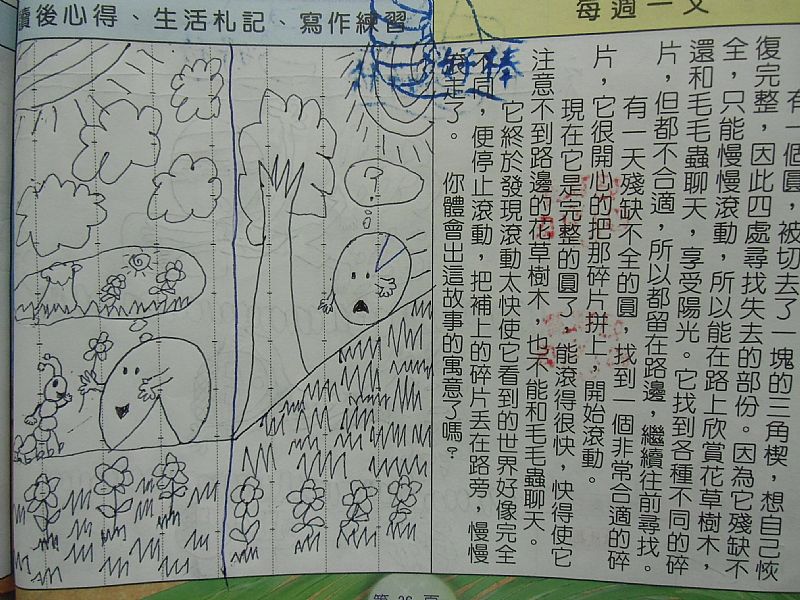 讀後心得、生活札記、寫作練習
每週一文
好棒
有一個圓，被切去了一塊的三角楔，想自己恢
復完整，因此四處尋找失去的部份。因為它殘缺不
全，只能慢慢滾動，所以能在路上欣賞花草樹木，
還和毛毛蟲聊天，享受陽光。它找到各種不同的碎
片，但都不合適，所以都留在路邊，繼續往前尋找。
有一天殘缺不全的圓，找到一個非常合適的碎
片，它很開心的把那碎片拼上，開始滾動。
現在它是完整的圓了，能滾得很快，快得使它
注意不到路邊的花草樹木，也不能和毛毛蟲聊天。
它終於發現滾動太快使它看到的世界好像完全
不同，便停止滾動，把補上的碎片丟在路旁，慢慢
走了。 你體會出這故事的寓意了嗎？
?